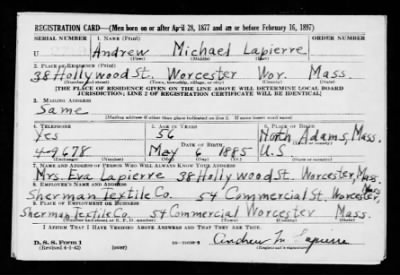 REGISTRATION CARD—(Men born on or after April 28, 1877 and on or before February 16, 1897)
SERIAL NUMBER 1. NAME (Print) ORDER NUMBER
U Andrew Michael Lapierre
(First) (Middle) (Last)
2. PLACE OF RESIDENCE (Print)
38 Hollywood St. Worcester Wor. Mass.
(Number and street) (Town, township, village, or city) (County) (State)
[THE PLACE OF RESIDENCE GIVEN ON THE LINE ABOVE WILL DETERMINE LOCAL BOARD
JURISDICTION; LINE 2 OF REGISTRATION CERTIFICATE WILL BE IDENTICAL]
3. MAILING ADDRESS
Same
[Mailing address if other than place indicated on line 2. If same insert word same]
4. TELEPHONE 5. AGE IN YEARS 6. PLACE OF BIRTH
Yes 56 North Adams, Mass.
DATE OF BIRTH
49678 May 6 1885 U.S.
7. NAME AND ADDRESS OF PERSON WHO WILL ALWAYS KNOW YOUR ADDRESS
Mrs. Eva Lapierre 38 Hollywood St. Worcester, Mass
8. EMPLOYER'S NAME AND ADDRESS
Sherman Textile Co. 54 Commercial St. Worcester, Mass
9. PLACE OF EMPLOYMENT OR BUSINESS
Sherman Textile Co. 54 Commercial Worcester Mass.
(Number and street or R. F. D. number) (Town) (County) (State)
I AFFIRM THAT I HAVE VERIFIED ABOVE ANSWERS AND THAT THEY ARE TRUE.
D. S. S. Form 1
(Revised 4-1-42) (over) Andrew M Lapierre